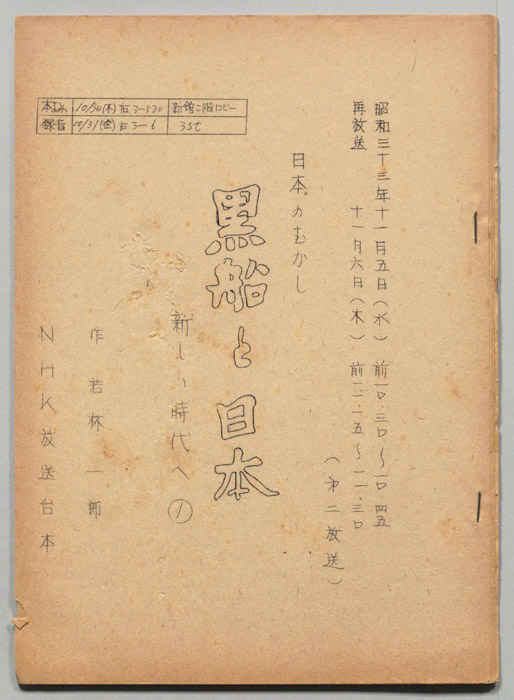 本よみ 10/30(木)后3-530 新館二階ロビー
録音 10/31(金)后3-6 3st
昭和三十三年十一月五日(水) 前一〇・三〇～一〇・四五
再放送 十一月六日(木) 前一一・一五～一一・三〇
(才二放送)
日本のむかし
黒船と日本
新しい時代へ①
作 若林一郎
NHK放送台本